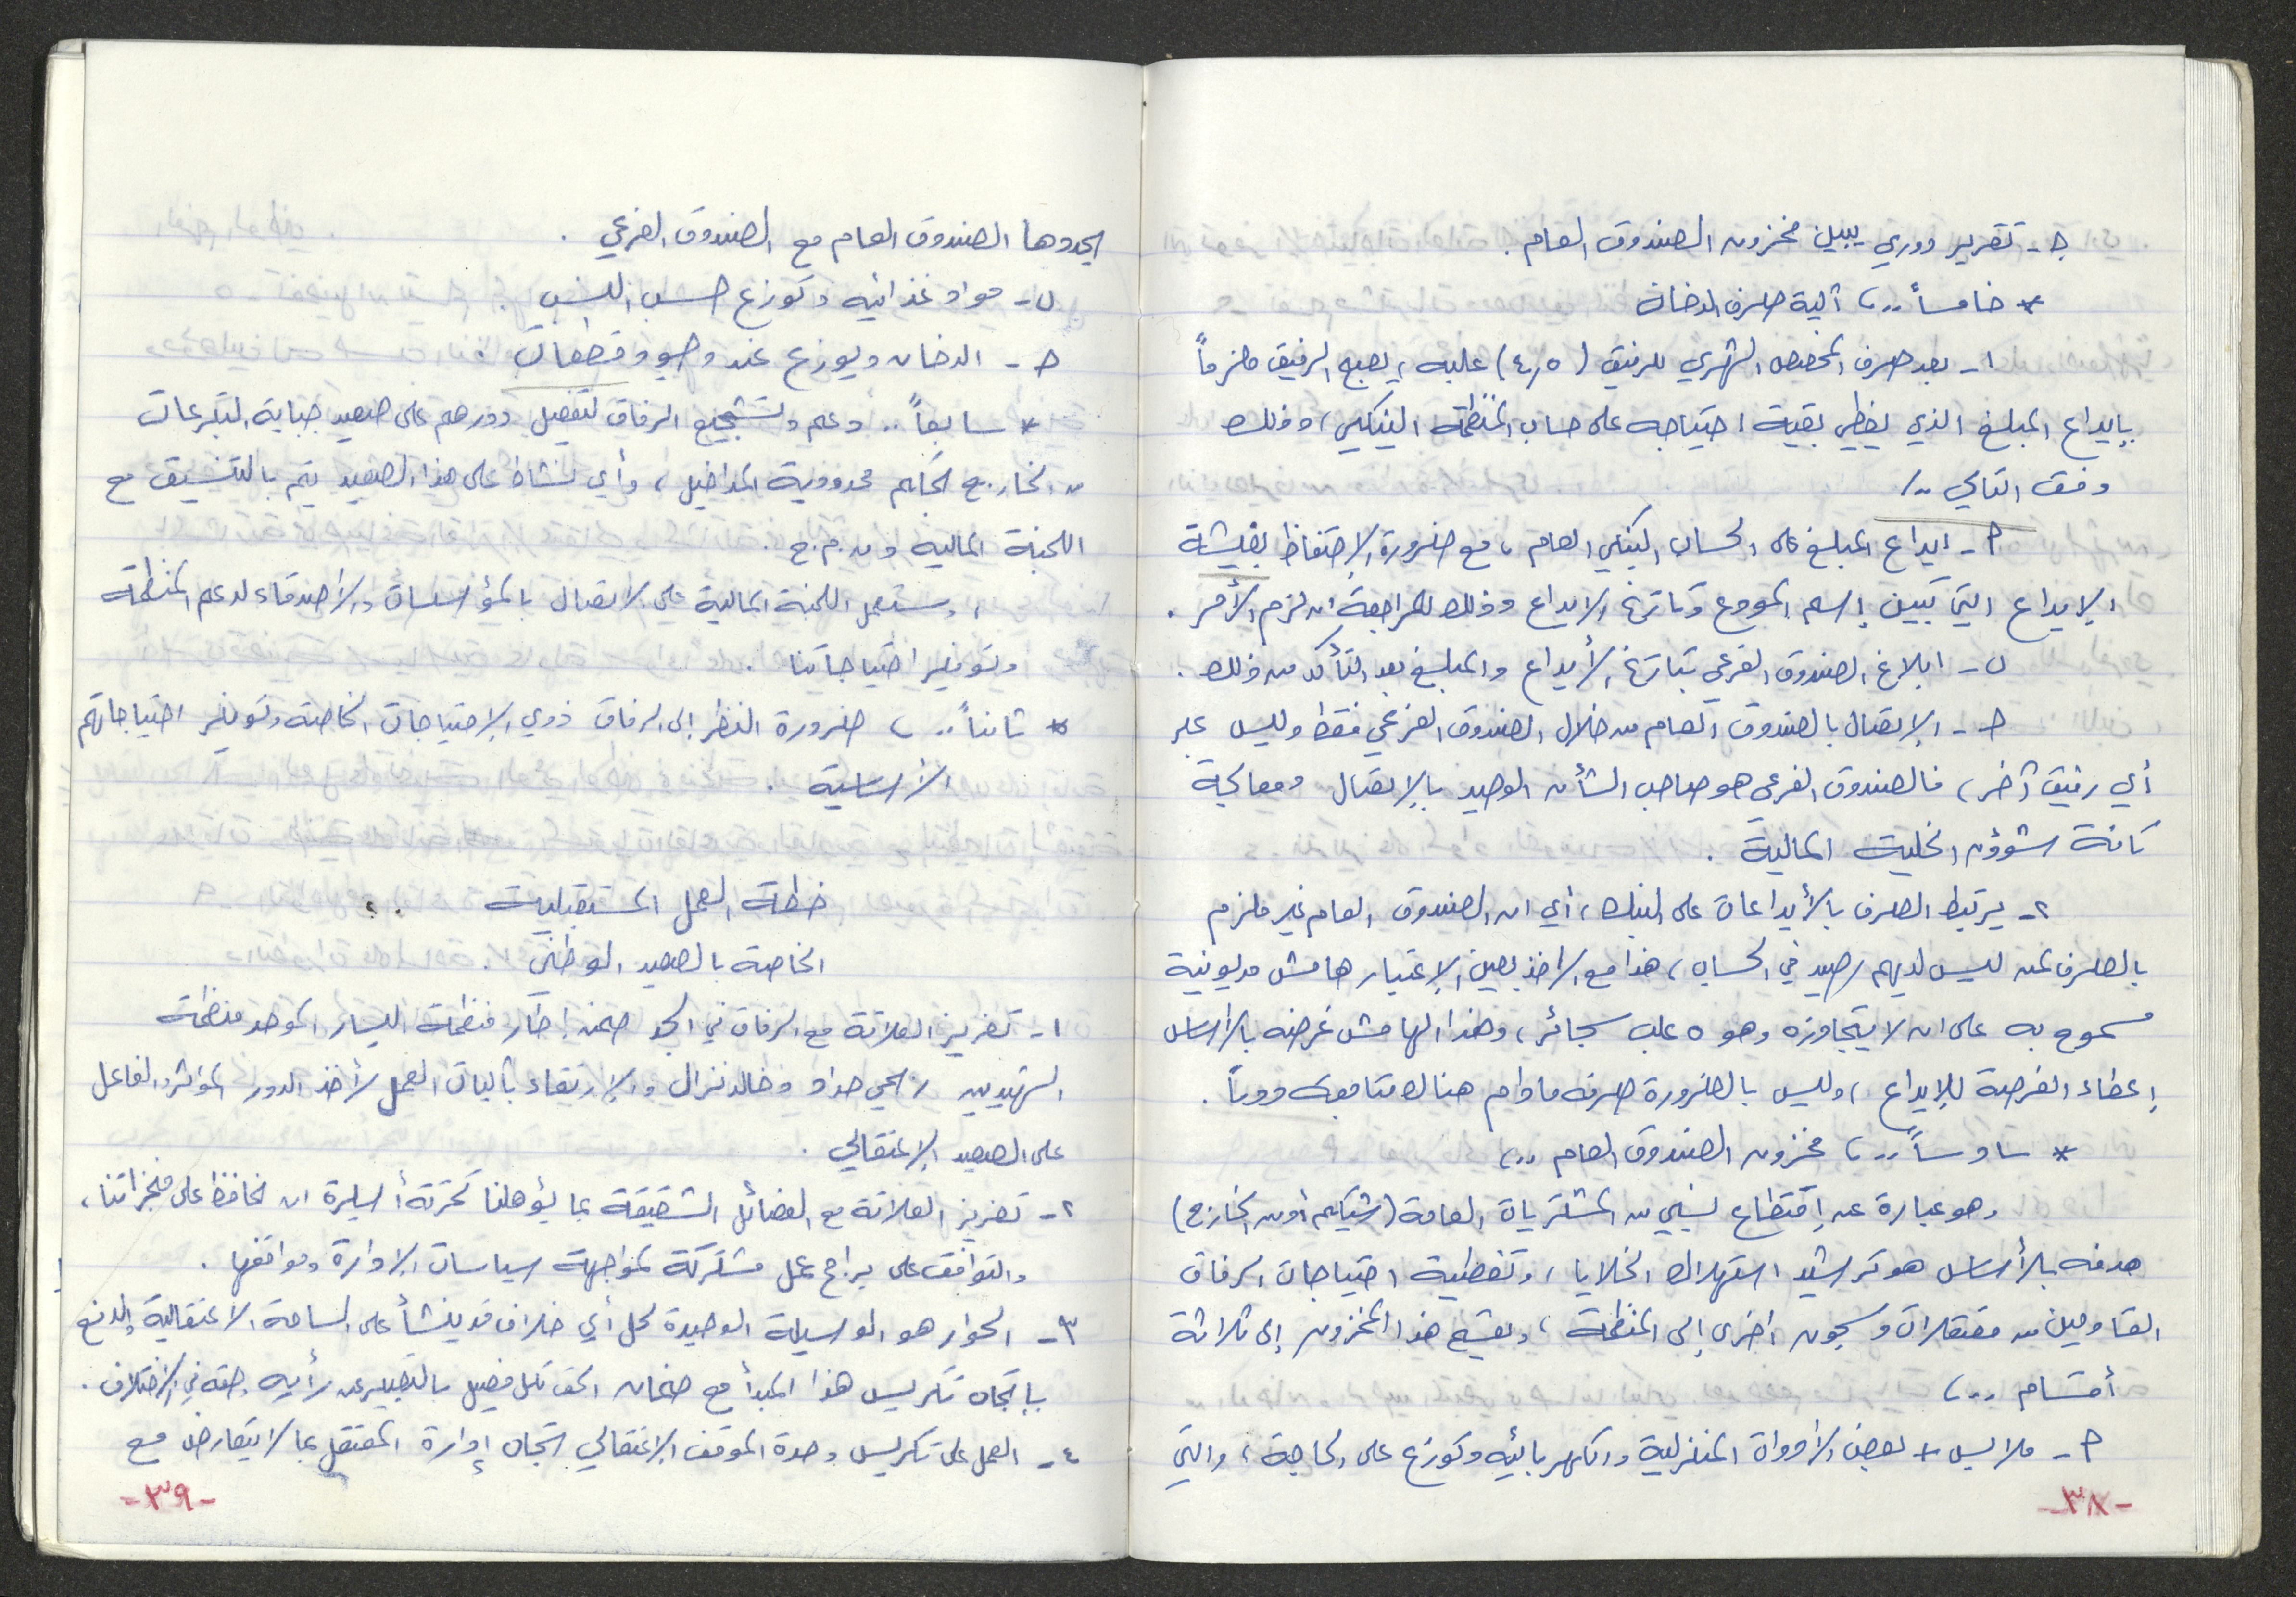 جـ - تقرير دوري يبين مخزون الصندوق العام .
* خامساً .. ، آلية صرف الدخان
١ - بعد صرف المخصص الشهري للرفيق ( ٤,٥ ) علبه ، يصبح الرفيق ملزماً
بإيداع المبلغ الذي يغطي بقية احتياجه على حساب المنظمة البنكي ، وذلك
وفق التالي ../
أ - ايداع المبلغ على الحساب البنكي العام ، مع ضرورة الإحتفاظ بفيشة
الإيداع التي تبين إسم المودع وتاريخ الإيداع وذلك للمراجعة ان لزم الأمر .
ب - ابلاغ الصندوق الفرعي بتاريخ الأيداع والمبلغ بعد التأكد من ذلك .
جـ - الإتصال بالصندوق العام من خلال الصندوق الفرعي فقط وليس عبر
أي رفيق آخر ، فالصندوق الفرعي هو صاحب الشأن الوحيد بالإتصال ومعالجة
كافة شؤون الخلية المالية .
٢ - يرتبط الصرف بالأيداعات على البنك ، أي ان الصندوق العام غير ملزم
بالصرف لمن ليس لديهم رصيد في الحساب ، هذا مع الأخذ بعين الإعتبار هامش مديونية
مسموح به على ان لا يتجاوزه وهو ٥ علب سجائر ، وهذا الهامش غرضه بالأساس
إعطاء الفرصة للإيداع ، وليس بالضرورة صرفه مادام هنالك متابعه دوماً .
* سادساً .. ، مخزون الصندوق العام .. ،
وهو عبارة عن إقتطاع نسبي من المشتريات العامة ( شيكم أو من الخارج )
هدفه بالأساس هو ترشيد استهلاك الخلايا ، وتغطية احتياجات الرفاق
القادمين من معتقلات وسجون اخرى إلى المنظمة ، ويقسم هذا المخزون إلى ثلاثة
أقسام .. ،
أ - ملابس + بعض الأدوات المنزلية والكهربائيه وتوزع على الحاجة ، والتي
- ٣٨ -
يحددها الصندوق العام مع الصندوق الفرعي .
ب - مواد غذائيه وتوزع حسب النسب .
جـ - الدخان ويوزع عند وجود قطعات .
* سابعاً .. دعم وتشجيع الرفاق لتفعيل دورهم على صعيد جباية التبرعات
من الخارج لحكم محدودية المداخيل ، وأي نشاط على هذا الصعيد يتم بالتنسيق مع
اللجنة الماليه و ن.م.ج .
، وستعمل اللجنة المالية على الإتصال بالمؤسسات والأصدقاء لدعم المنظمة
وتوفير احتياجاتنا .
* ثامناً .. ، ضرورة النظر إلى الرفاق ذوي الإحتياجات الخاصة وتوفير احتياجاتهم
الأساسية .
خطة العمل المستقبلية
الخاصة بالصعيد الوطني .
١ - تعزيز العلاقة مع الرفاق في الحد ضمن إطار منظمة اليسار الموحد منظمة
الشهيدين سمحي حداد وخالد نزال والإرتقاء بآليات العمل لأخذ الدور المؤثر والفاعل
على الصعيد الإعتقالي .
٢ - تعزيز العلاقة مع الفصائل الشقيقة بما يؤهلنا كحركة أسيرة ان نحافظ على منجزاتنا ،
والتوافق على برامج عمل مشتركة لمواجهة سياسات الإدارة ومواقفها .
٣ - الحوار هو الوسيلة الوحيدة لحل أي خلاف قد ينشأ على الساحة الاعتقالية والدفع
بإتجاه تكريس هذا المبدأ مع ضمان الحق لكل فصيل بالتعبير عن رأيه وحقه في الإختلاف .
٤ - العمل على تكريس وحدة الموقف الإعتقالي اتجاه إدارة المعتقل بما لا يتعارض مع
- ٣٩ -